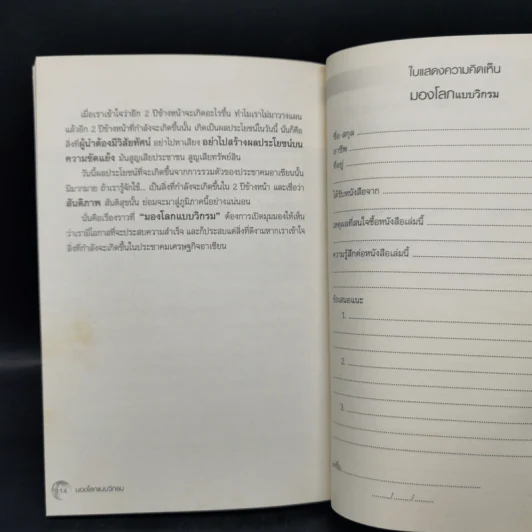 เมื่อเราเข้าใจว่าอีก 2 ปีข้างหน้าจะเกิดอะไรขึ้น ทำไมเราไม่มาวางแผน
แล้วอีก 2 ปีข้างหน้าที่กำลังจะเกิดขึ้นนั้น เกิดเป็นผลประโยชน์ในวันนี้ นั่นก็คือ
สิ่งที่ผู้นำต้องมีวิสัยทัศน์ อย่าไปหาเสียง อย่าไปสร้างผลประโยชน์บน
ความขัดแย้ง มันสูญเสียประชาชน สูญเสียทรัพย์สิน
วันนี้ผลประโยชน์ที่จะเกิดขึ้นจากการรวมตัวของประชาคมอาเซียนนั้น
มีมากมาย ถ้าเรารู้จักใช้... เป็นสิ่งที่กำลังจะเกิดขึ้นใน 2 ปีข้างหน้า และเชื่อว่า
สันติภาพ สันติสุขนั้น ย่อมจะมาสู่ภูมิภาคนี้อย่างแน่นอน
นั่นคือเรื่องราวที่ “มองโลกแบบวิกรม” ต้องการเปิดมุมมองให้เห็น
ว่าเรามีโอกาสที่จะประสบความสำเร็จ และก็ประสบแต่สิ่งที่ดีงามหากเราเข้าใจ
สิ่งที่กำลังจะเกิดขึ้นในประชาคมเศรษฐกิจอาเซียน
มองโลกแบบวิกรม
ใบแสดงความคิดเห็น
มองโลกแบบวิกรม
ชื่อ-สกุล
อาชีพ
ที่อยู่
ได้รับหนังสือจาก
เหตุผลที่สนใจซื้อหนังสือเล่มนี้
ความรู้สึกต่อหนังสือเล่มนี้
ข้อเสนอแนะ
1.
2.
3.
ลงชื่อ
........./........./.........